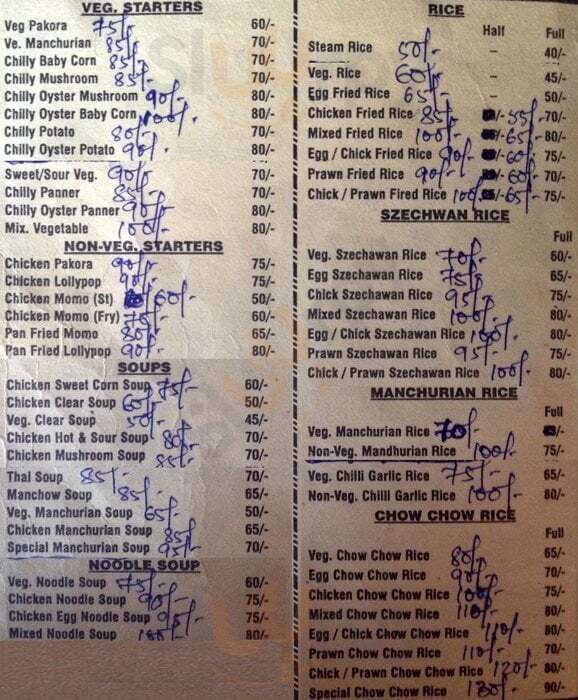 VEG. STARTERS
Veg Pakora 75/- 60/-
Ve. Manchurian 85/- 70/-
Chilly Baby Corn 85/- 70/-
Chilly Mushroom 85/- 70/-
Chilly Oyster Mushroom 90/- 80/-
Chilly Oyster Baby Corn 100/- 80/-
Chilly Potato 80/- 70/-
Chilly Oyster Potato 90/- 80/-
Sweet/Sour Veg. 90/- 70/-
Chilly Panner 85/- 70/-
Chilly Oyster Panner 90/- 80/-
Mix. Vegetable 100/- 80/-
NON-VEG. STARTERS
Chicken Pakora 90/- 75/-
Chicken Lollypop 90/- 75/-
Chicken Momo (St) 60/- 50/-
Chicken Momo (Fry) 75/- 60/-
Pan Fried Momo 80/- 65/-
Pan Fried Lollypop 90/- 80/-
SOUPS
Chicken Sweet Corn Soup 75/- 60/-
Chicken Clear Soup 60/- 50/-
Veg. Clear Soup 50/- 45/-
Chicken Hot & Sour Soup 80/- 70/-
Chicken Mushroom Soup 85/- 70/-
Thai Soup 85/- 70/-
Manchow Soup 85/- 65/-
Veg. Manchurian Soup 65/- 50/-
Chicken Manchurian Soup 85/- 65/-
Special Manchurian Soup 95/- 70/-
NOODLE SOUP
Veg. Noodle Soup 75/- 60/-
Chicken Noodle Soup 90/- 75/-
Chicken Egg Noodle Soup 95/- 75/-
Mixed Noodle Soup 100/- 80/-
RICE
Half Full
Steam Rice 50/- – 40/-
Veg. Rice 60/- – 45/-
Egg Fried Rice 65/- – 50/-
Chicken Fried Rice 85/- /- 55/- 70/-
Mixed Fried Rice 100/- /- 65/- 80/-
Egg / Chick Fried Rice 90/- /- 60/- 75/-
Prawn Fried Rice 90/- /- 60/- 70/-
Chick / Prawn Fired Rice 100/- /- 65/- 75/-
SZECHWAN RICE
Full
Veg. Szechawan Rice 70/- 60/-
Egg Szechawan Rice 75/- 65/-
Chick Szechawan Rice 95/- 75/-
Mixed Szechawan Rice 100/- 80/-
Egg / Chick Szechawan Rice 100/- 80/-
Prawn Szechawan Rice 95/- 75/-
Chick / Prawn Szechawan Rice 100/- 80/-
MANCHURIAN RICE
Full
Veg. Manchurian Rice 70/- /-
Non-Veg. Mandhurian Rice 100/- 75/-
Veg. Chilli Garlic Rice 75/- 65/-
Non-Veg. Chilli Garlic Rice 100/- 80/-
CHOW CHOW RICE
Full
Veg. Chow Chow Rice 80/- 65/-
Egg Chow Chow Rice 90/- 70/-
Chicken Chow Chow Rice 100/- 75/-
Mixed Chow Chow Rice 110/- 80/-
Egg / Chick Chow Chow Rice 110/- 80/-
Prawn Chow Chow Rice 110/- 70/-
Chick / Prawn Chow Chow Rice 120/- 80/-
Special Chow Chow Rice 130/- 90/-